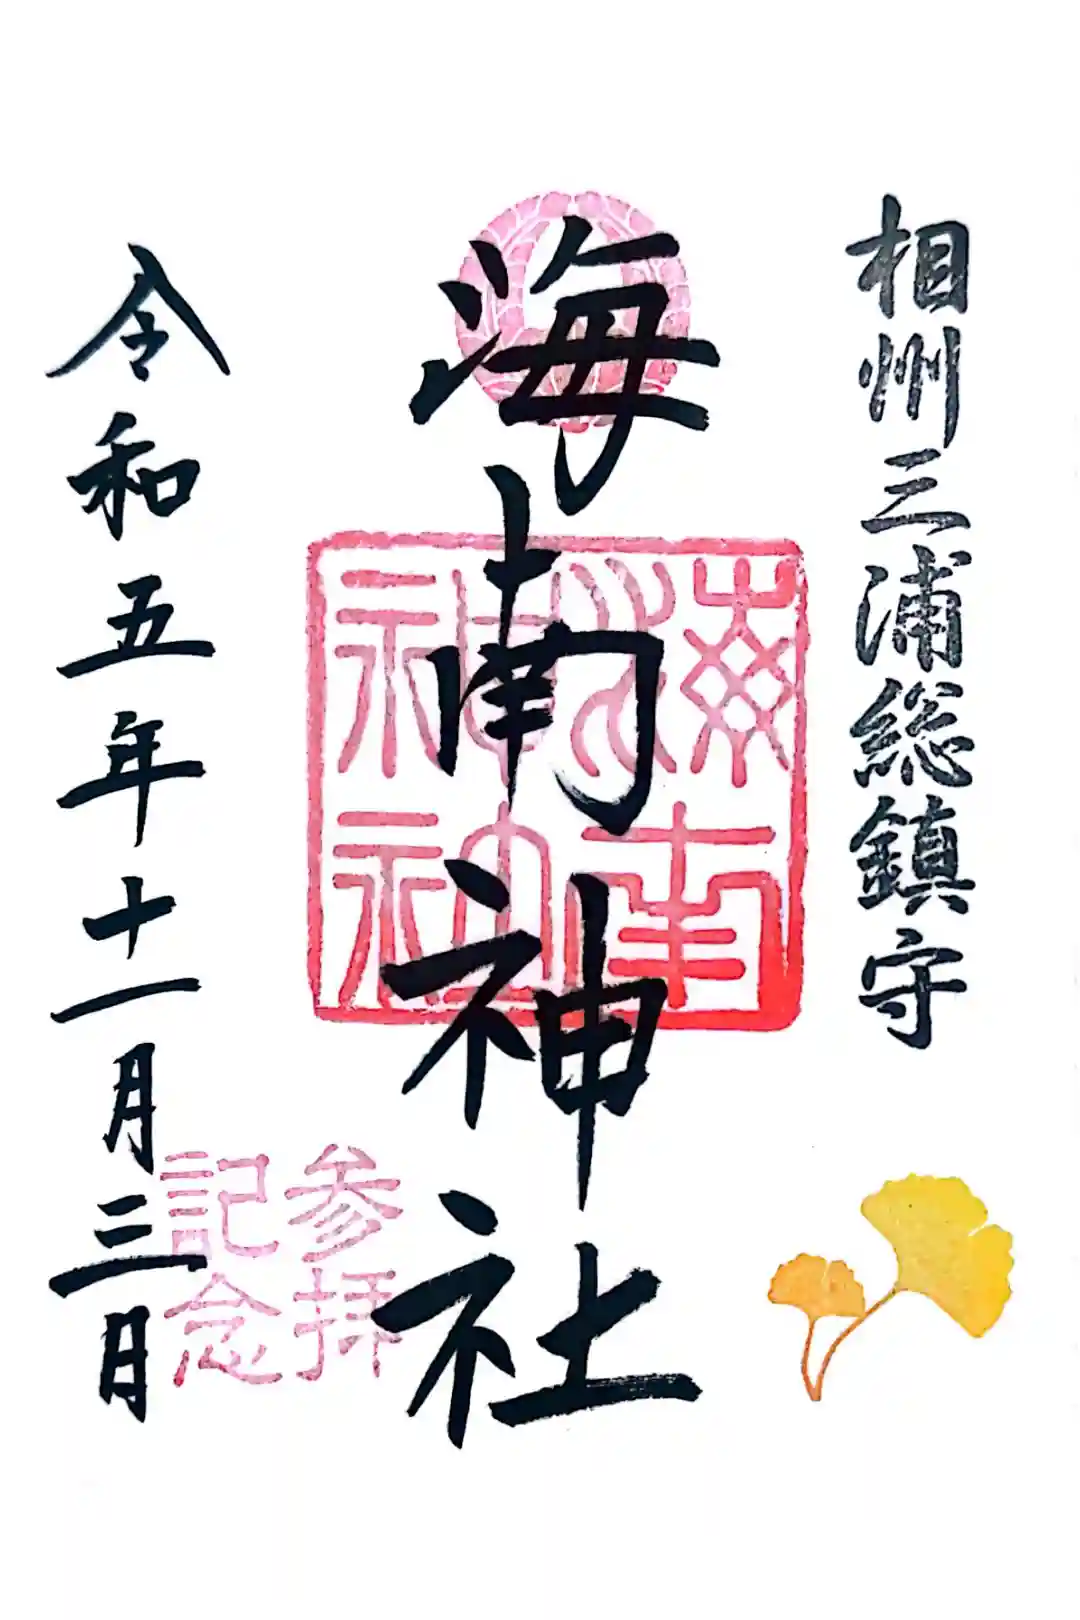 相州三浦総鎮守
海南神社
海南
神社
参拝
記念
令和五年十一月三日